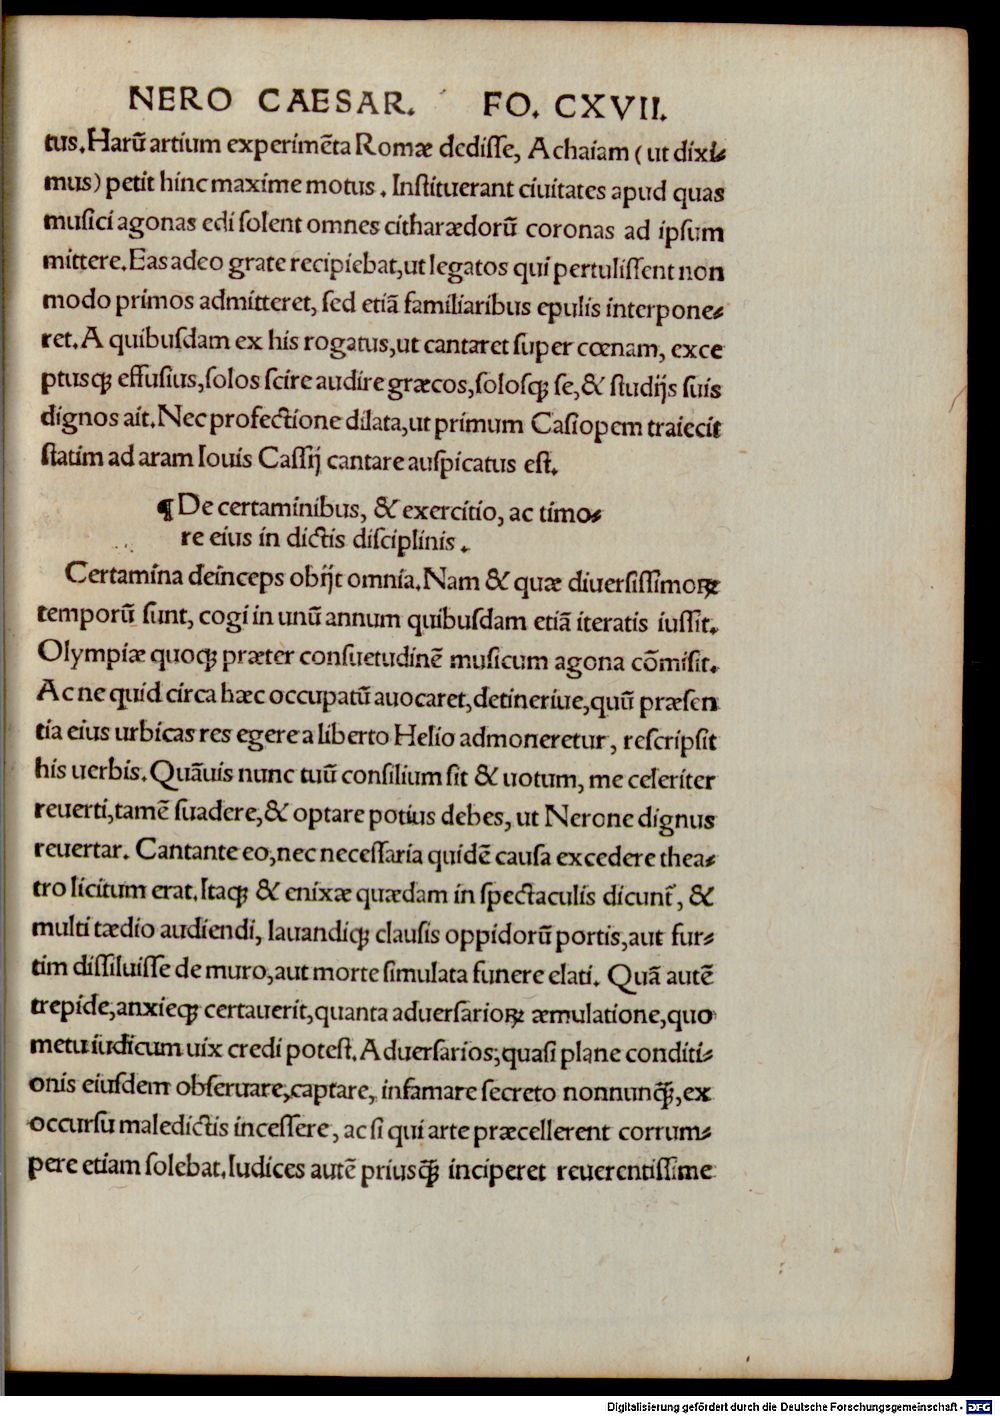 NERO CAESAR. FO. CXVII.
tus. Harũ artium experimẽta Romæ dedisse, Achaiam (ut dixi⸗
mus) petit hinc maxime motus. Instituerant ciuitates apud quas
musici agonas edi solent omnes citharædorũ coronas ad ipsum
mittere. Eas adeo grate recipiebat, ut legatos qui pertulissent non
modo primos admitteret, sed etiã familiaribus epulis interpone⸗
ret. A quibusdam ex his rogatus, ut cantaret super cœnam, exce
ptusq̃ effusius, solos scire audire græcos, solosq̃ se, & studijs suis
dignos ait. Nec profectione dilata, ut primum Casiopem traiecit
statim ad aram Iouis Cassij cantare auspicatus est.
¶ De certaminibus, & exercitio, ac timo⸗
re eius in dictis disciplinis.
Certamina deinceps obijt omnia. Nam & quæ diuersissimoꝝ
temporũ sunt, cogi in unũ annum quibusdam etiã iteratis iussit.
Olympiæ quoq̃ præter consuetudinẽ musicum agona cõmisit.
Ac ne quid circa hæc occupatũ auocaret, detineriue, quũ præsen
tia eius urbicas res egere a liberto Helio admoneretur, rescripsit
his uerbis. Quãuis nunc tuũ consilium sit & uotum, me celeriter
reuerti, tamẽ suadere, & optare potius debes, ut Nerone dignus
reuertar. Cantante eo, nec necessaria quidẽ causa excedere thea⸗
tro licitum erat. Itaq̃ & enixæ quædam in spectaculis dicunt̃, &
multi tædio audiendi, lauandiq̃ clausis oppidorũ portis, aut fur⸗
tim dissiluisse de muro, aut morte simulata funere elati. Quã autẽ
trepide, anxieq̃ certauerit, quanta aduersarioꝝ æmulatione, quo
metu iudicum uix credi potest. Aduersarios, quasi plane conditi⸗
onis eiusdem obseruare, captare, infamare secreto nonnunq̃, ex
occursu maledictis incessere, ac si qui arte præcellerent corrum⸗
pere etiam solebat. Iudices autẽ priusq̃ inciperet reuerentissime
Digitalisierung gefördert durch die Deutsche Forschungsgemeinschaft - DFG